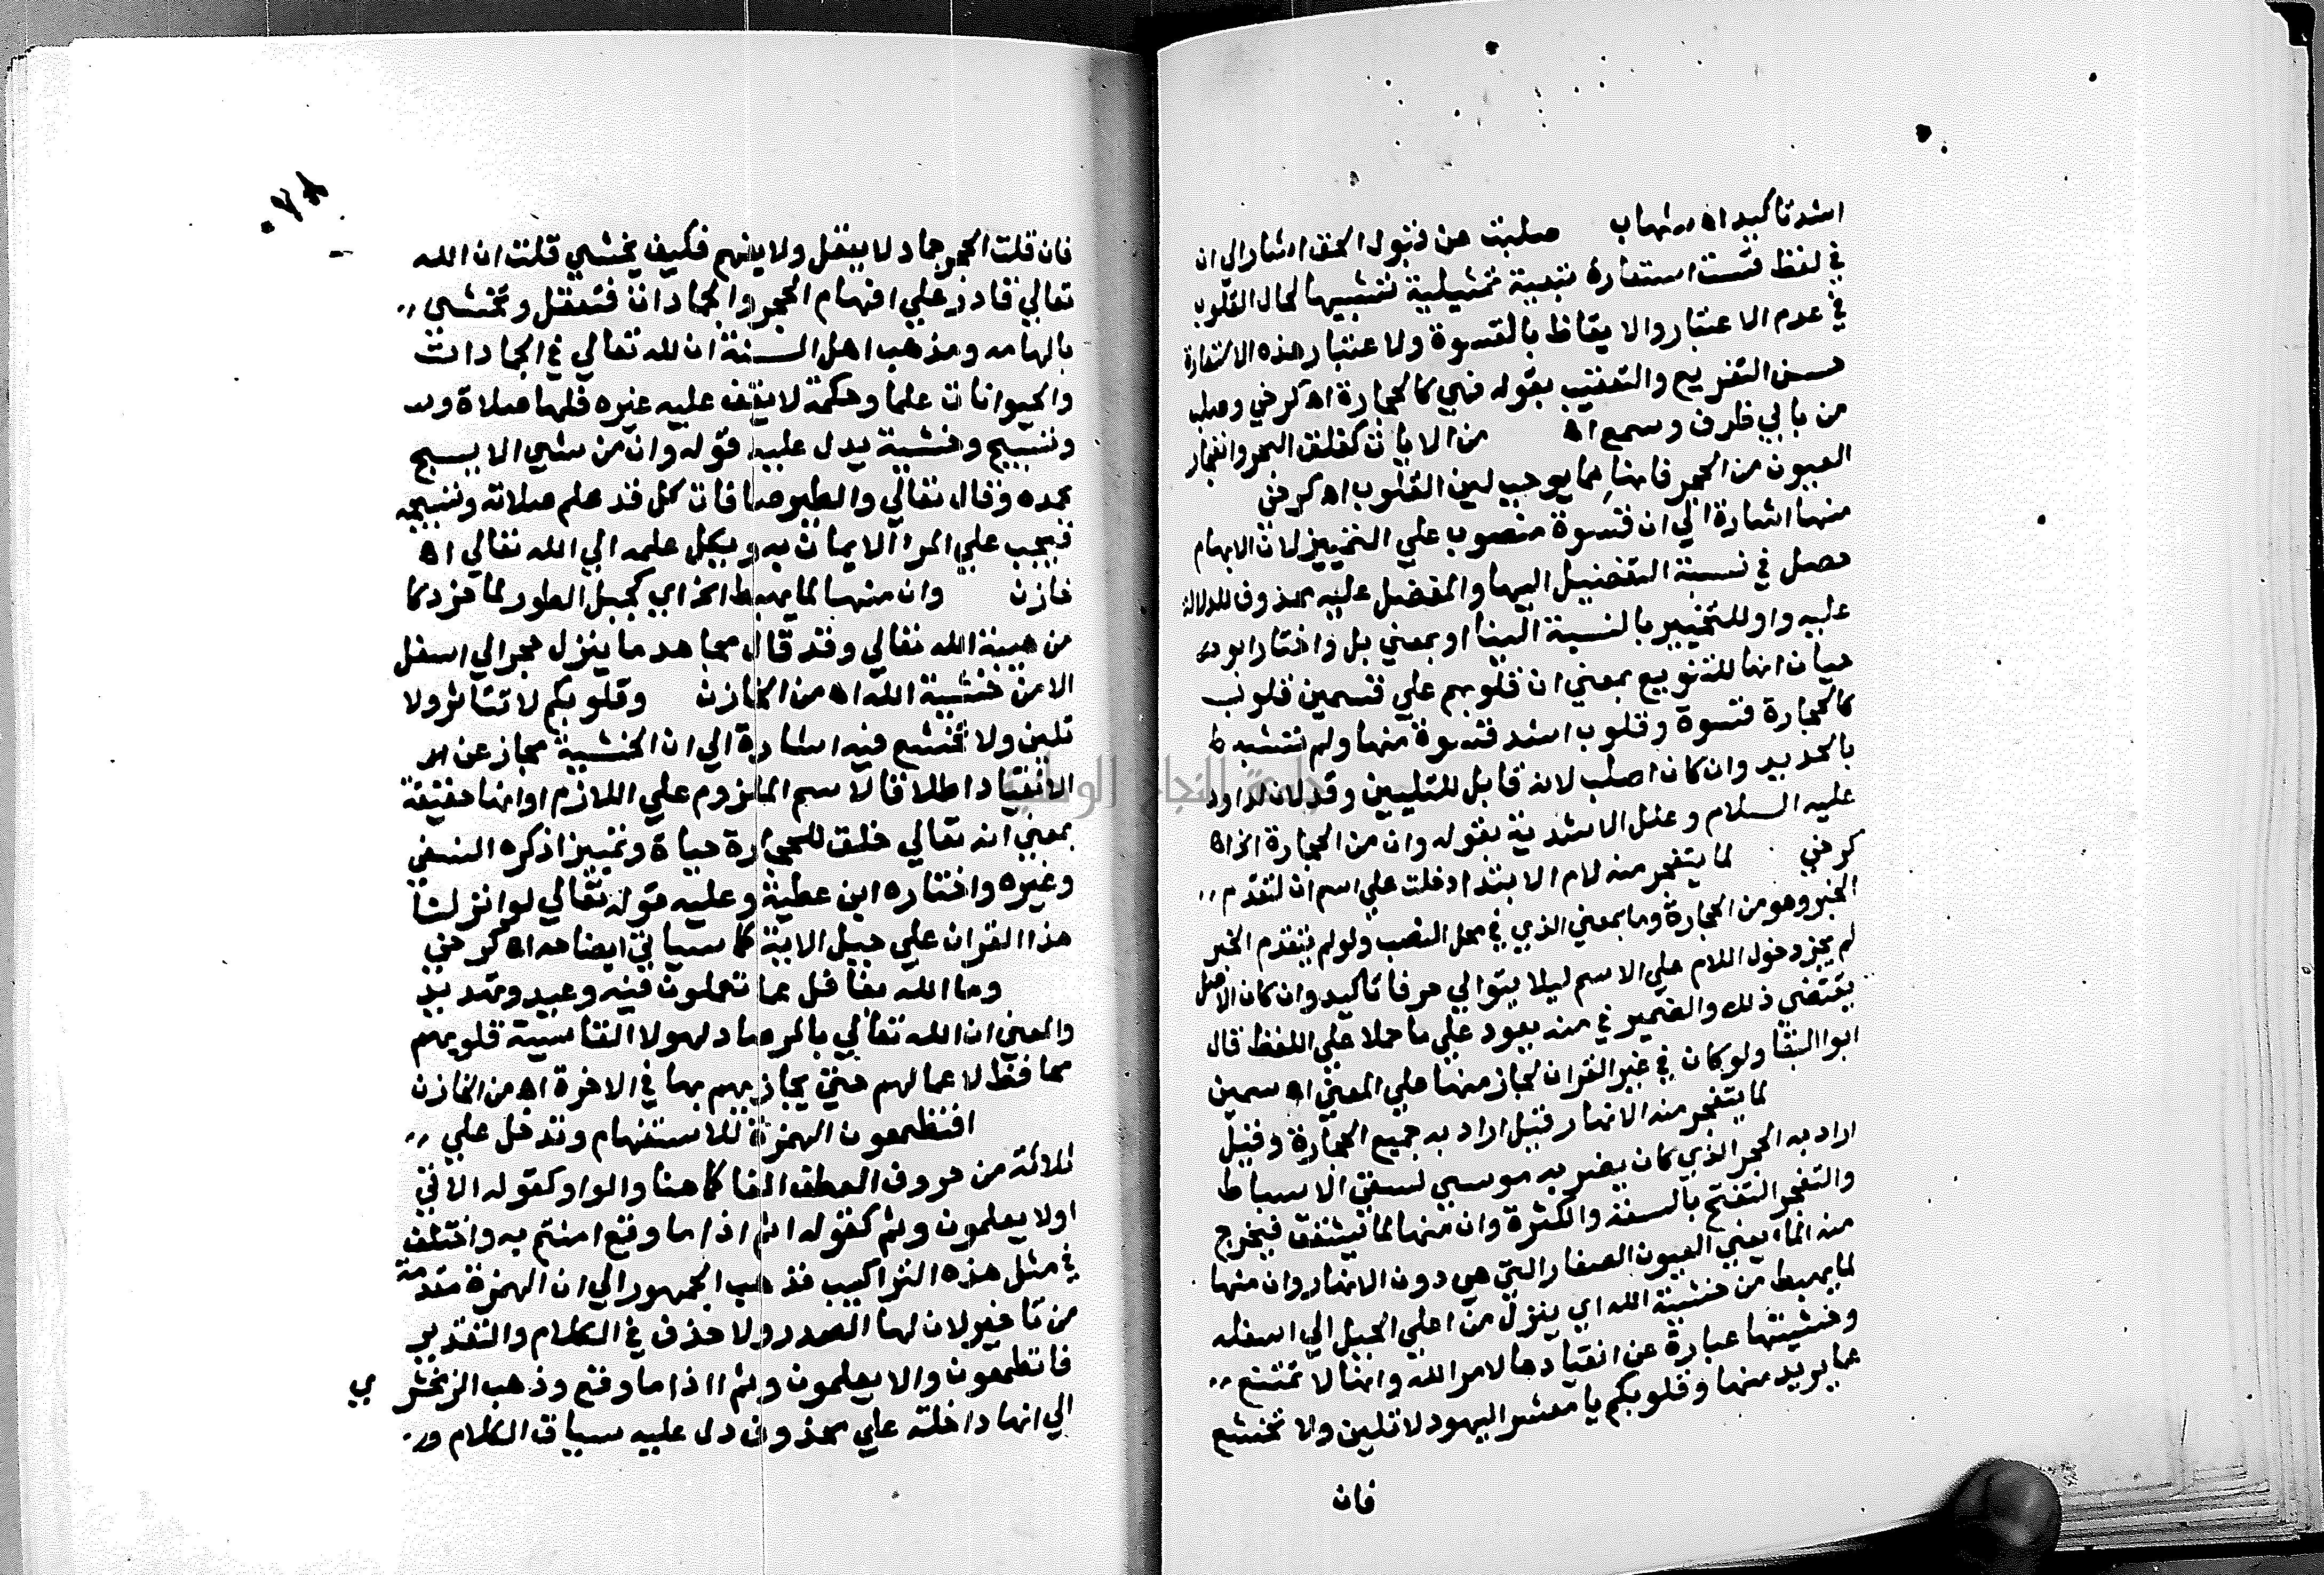 اشد تاكيد اه شهاب صلبت عن قبول الحق اشار الي ان
في لفظ قست استعارة تبعية تمثيلية تشبيها لحال القلوب
في عدم الاعتبار والايقاظ بالقسوة ولاعتبار هذه الاستعارة
حسن التفريع والتعقيب بقوله فهي كالحجارة اه كرخي وصلب
من بابي ظرف وسمع اه من الايات كفلق البحر وانفجار
العيون من الحجر فانها مما يوجب لين القلوب اه كرخي
منها اشارة الي ان قسوة منصوب علي التمييز لان الابهام
حصل في نسبة التفضيل اليها والمفضل عليه محذوف للدلالة
عليه واو للتخيير بالنسبة الينا او بمعني بل واختار ابو
حيان انها للتنويع بمعني ان قلوبهم علي قسمين قلوب
كالحجارة قسوة وقلوب اشد قسوة منها ولم تشبه
بالحديد وان كان اصلب لانه قابل للتليين وقد لان لداود
عليه السلام وعلل الاشدية بقوله وان من الحجارة الخ اه
كرخي لما يتفجر منه لام الابتدا دخلت علي اسم ان لتقدم
الخبر وهو من الحجارة وما بمعني الذي في محل النصب ولو لم يتقدم الخبر
لم يجز دخول اللام علي الاسم ليلا يتوالي حرفا تاكيد وان كان الاصل
يقتضي ذلك والضمير في منه يعود علي ما حملا علي اللفظ قال
ابوا البقا ولو كان في غير القران لجاز منها علي المعني اه سمين
لما يتفجر منه الانهار قيل اراد به جميع الحجارة وقيل
اراد به الحجر الذي كان يضرب موسي لسقي الاسباط
والتفجر التفتح بالسعة والكثرة وان منها لما يشقق فيخرج
منه الماء يعني العيون الصغار التي هي دون الانهار وان منها
لما يهبط من خشية الله اي ينزل من اعلي الجبل الي اسفله
وخشيتها عبارة عن انقيادها لامر الله وانها لا تمتنع
عما يريد منها وقلوبكم يا معشر اليهود لا تلين ولا تخشع
فان
٠٧٨
فان قلت الحجر جماد لا يعقل ولا يفهم فكيف يخشي قلت ان الله
تعالي قادر علي افهام الحجر والجمادات فتعقل وتخشي
بالهامه ومذهب اهل السنة ان لله تعالي في الجمادات
والحيوانات علما وحكمة لا يقف عليه غيره فلها صلاة وت
وتسبيح وخشية يدل عليه قوله وان من شي الا يسبح
بحمده وقال تعالي والطير صافات كل قد علم صلاته وتسبيحه
فيجب علي المرا الايمان به ويكل علمه الي الله تعالي اه
خازن وان منها لما يهبط الخ اي كجبل الطور لما خر دكا
من هيبة الله تعالي وقد قال مجاهد ما ينزل حجر الي اسفل
الا من خشية الله اه من الخازن وقلوبكم لا تتاثر ولا
تلين ولا تخشع فيه اشارة الي ان الخشية مجاز عن
الانقياد اطلاقا لاسم الملزوم علي اللازم او انها حقيقة
بمعني انه تعالي خلق للحجارة حياة وتمييزا ذكره النسفي
وغيره واختاره ابن عطية وعليه قوله تعالي لو انزلنا
هذا القران علي جبل الاية كما سياتي ايضاحه اه كرخي
وما الله بغافل عما تعملون فيه وعيد وتهديد
والمعني ان الله تعالي بالمرصاد لهولا القاسية قلوبهم
محافظ لاعمالهم حتي يجازيهم بها في الاخرة اه من الخازن
افتطمعون الهمزة للاستفهام وتدخل علي
ثلاثة من حروف العطف الفا كما هنا والواو كقوله الاتي
اولا يعلمون وثم كقوله اثم اذا ما وقع امنتم به واختلف
في مثل هذه التراكيب فذهب الجمهور الي ان الهمزة مقدمة
من تاخير لان لها الصدر ولا حذف في الكلام والتقدير
فاتطمعون والا يعلمون وثم ااذا ما وقع وذهب الزمخشري
الي انها داخلة علي محذوف دل عليه سياق الكلام
جامعة النجاح الوطنية